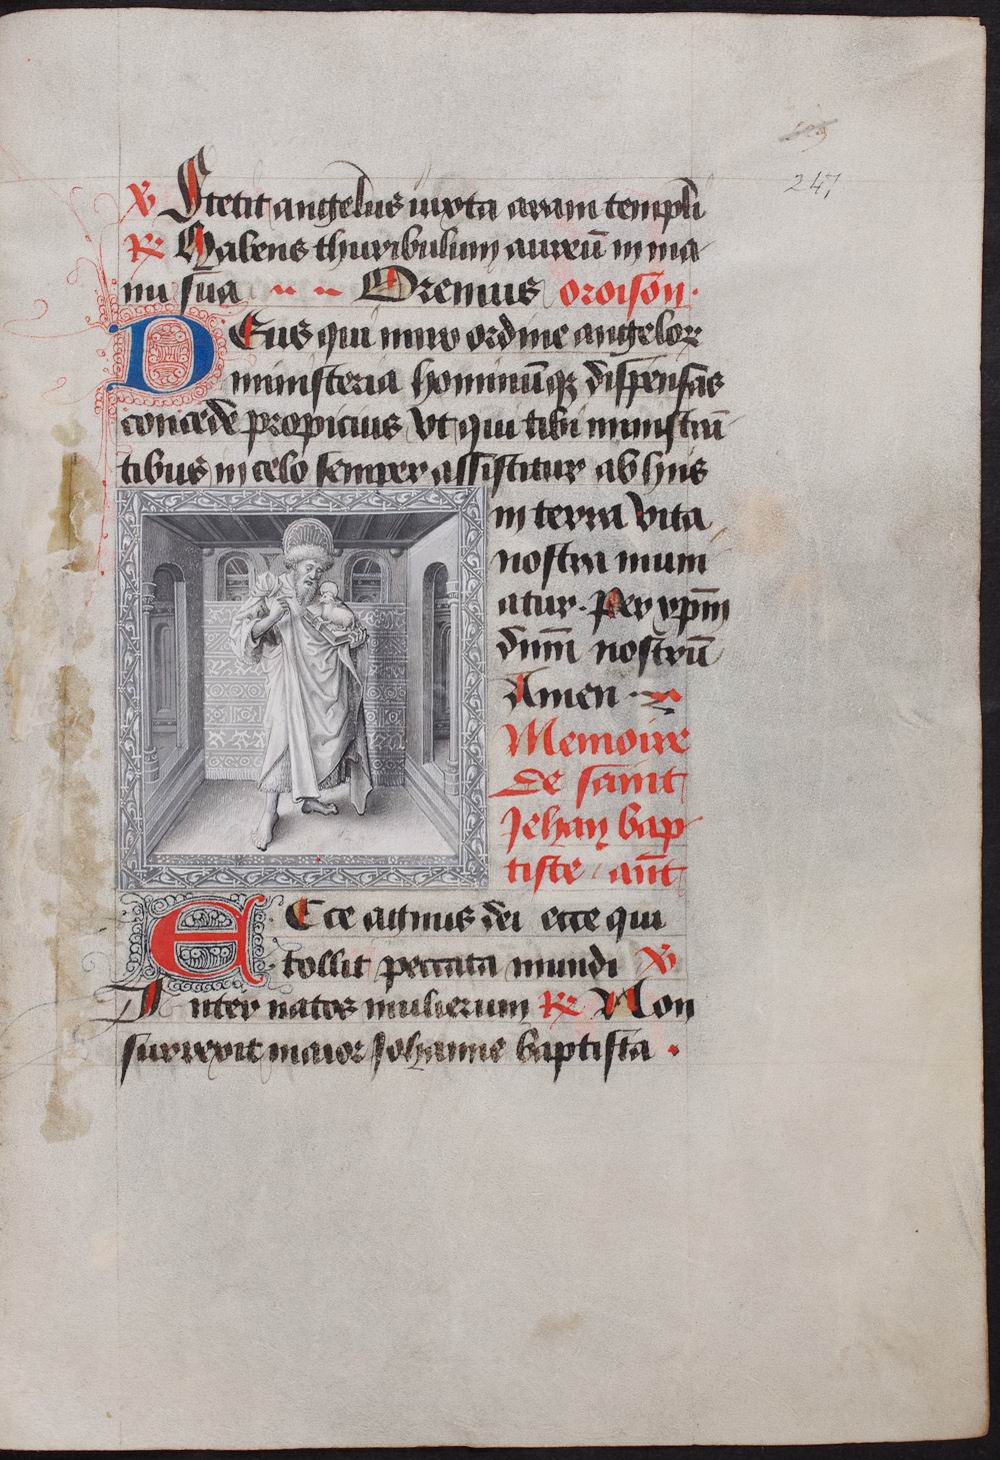 247
℣ Stetit angelus iuxta aram templi
℟ Habens thuribulum aureū in ma
nu sua Oremus oroison.
DEus qui miro ordine angelor
ministeria hominūq₃ dispensas
concede propicius Vt qui tibi ministrā
tibus in celo semper assistitur ab hiis
in terra vita
nostra mum
atur. Per xpm̄
dnm̄ nostrū
Amen
Memoire
de saint
Jehan bap
tiste / ant̄
ECce agnus dei ecce qui
tollit peccata mundi ℣
Inter natos mulierum ℟ Non
surrexit maior Johanne baptista .